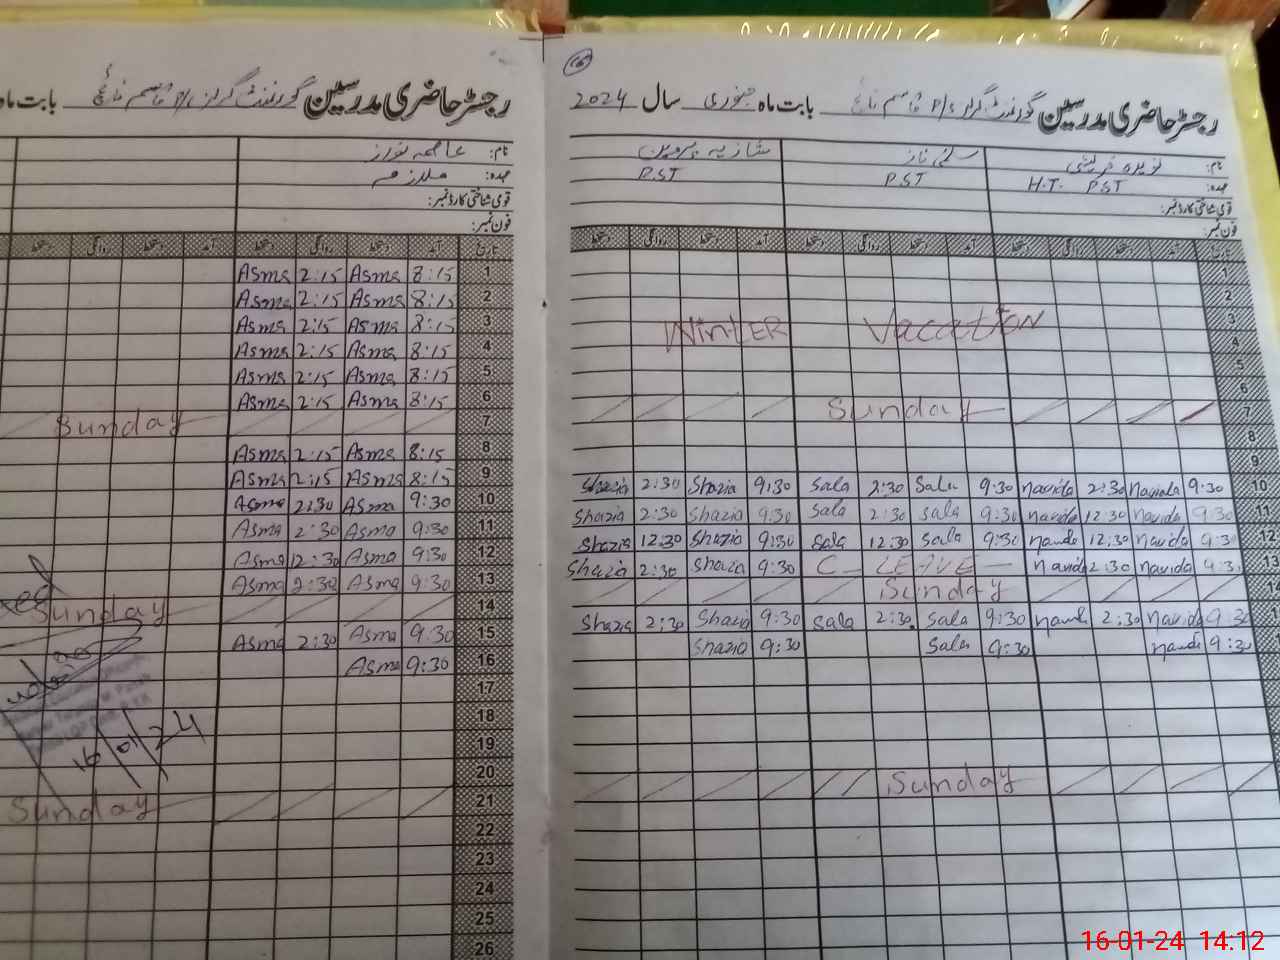 رجسٹر حاضری مدرسین گورنمنٹ گرلز P/S قاسم باغ بابت ماہ
نام: عاصمہ نورز
عہدہ: ملازمہ
قومی شناختی کارڈ نمبر:
فون نمبر:
تاریخ آمد دستخط روانگی دستخط آمد دستخط روانگی دستخط
1 8:15 Asma 2:15 Asma
2 8:15 Asma 2:15 Asma
3 8:15 Asma 2:15 Asma
4 8:15 Asma 2:15 Asma
5 8:15 Asma 2:15 Asma
6 8:15 Asma 2:15 Asma
7 Sunday
8 8:15 Asma 2:15 Asma
9 8:15 Asma 2:15 Asma
10 9:30 Asma 2:30 Asma
11 9:30 Asma 2:30 Asma
12 9:30 Asma 12:30 Asma
13 9:30 Asma 2:30 Asma
14 Sunday
15 9:30 Asma 2:30 Asma
16 9:30 Asma
17
18
19
20
21 Sunday
22
23
24
25
26
16/01/24
16
رجسٹر حاضری مدرسین گورنمنٹ گرلز P/S قاسم باغ بابت ماہ جنوری سال 2024
نام: نویدہ قریشی سلمیٰ ناز شازیہ پروین
عہدہ: H.T. PST PST P.S.T
قومی شناختی کارڈ نمبر:
فون نمبر:
تاریخ آمد دستخط روانگی دستخط آمد دستخط روانگی دستخط آمد دستخط روانگی دستخط
1
2
3 Winter Vacation
4
5
6
7 Sunday
8
9
10 9:30 Navida 2:30 Navida 9:30 Sala 2:30 Sala 9:30 Shazia 2:30 Shazia
11 9:30 Navida 12:30 Navida 9:30 Sala 2:30 Sala 9:30 Shazia 2:30 Shazia
12 9:30 Navida 12:30 Navida 9:30 Sala 12:30 Sala 9:30 Shazia 12:30 Shazia
13 9:30 Navida 2:30 Navida C- LEAVE 9:30 Shazia 2:30 Shazia
Sunday
9:30 Navida 2:30 Navida 9:30 Sala 2:30 Sala 9:30 Shazia 2:30 Shazia
9:30 Navida 9:30 Sala 9:30 Shazia
Sunday
16-01-24 14:12